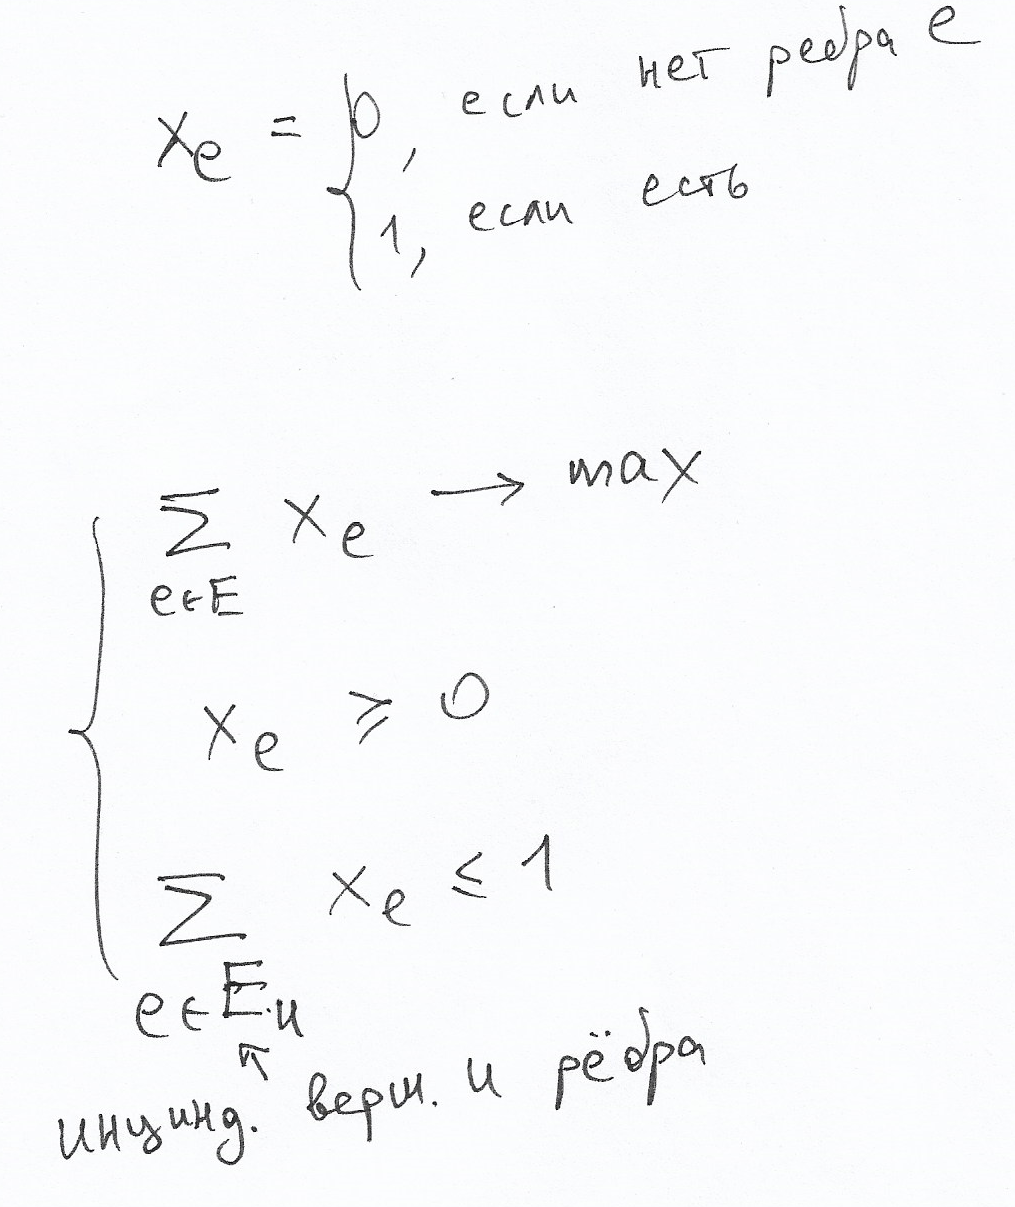 x_e = { 0, если нет ребра e
1, если есть
∑ x_e → max
e∈E
x_e ≥ 0
∑ x_e ≤ 1
e∈E_u
инцинд. верш. u рёбра